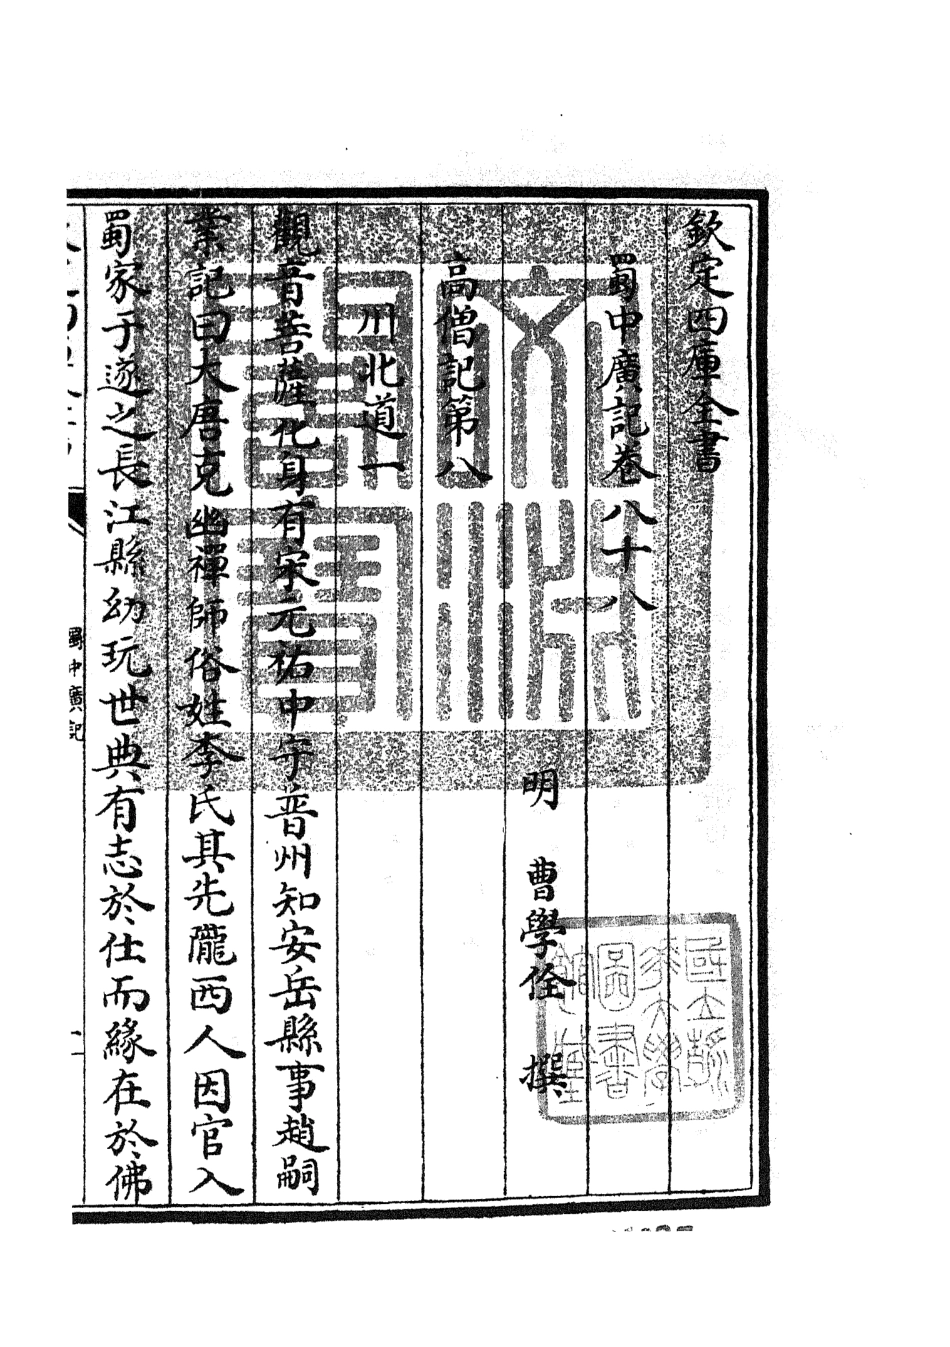 欽定四庫全書
蜀中廣記卷八十八
明 曹學佺 撰
高僧記第八
川北道一
觀音菩薩化身有宋元祐中守普州知安岳縣事趙嗣
業記曰大唐克幽禪師俗姓李氏其先隴西人因官入
蜀家于遂之長江縣幼玩世典有志於仕而緣在於佛
蜀中廣記
一
文淵閣寶
國立浙江大學圖書館藏